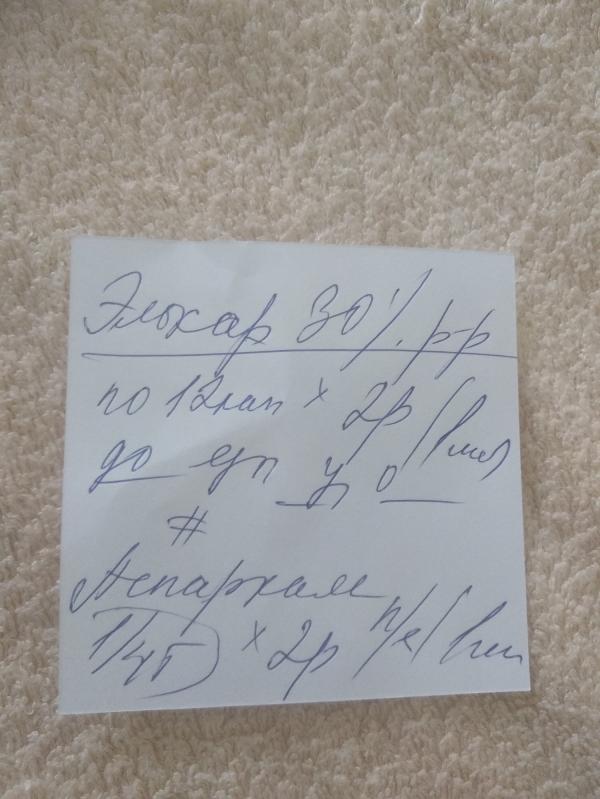 Элькар 30% р-р
по 12 кап × 2р/1 мес
до еды у о
#
Аспаркам
1/4т × 2р п/е/1 м